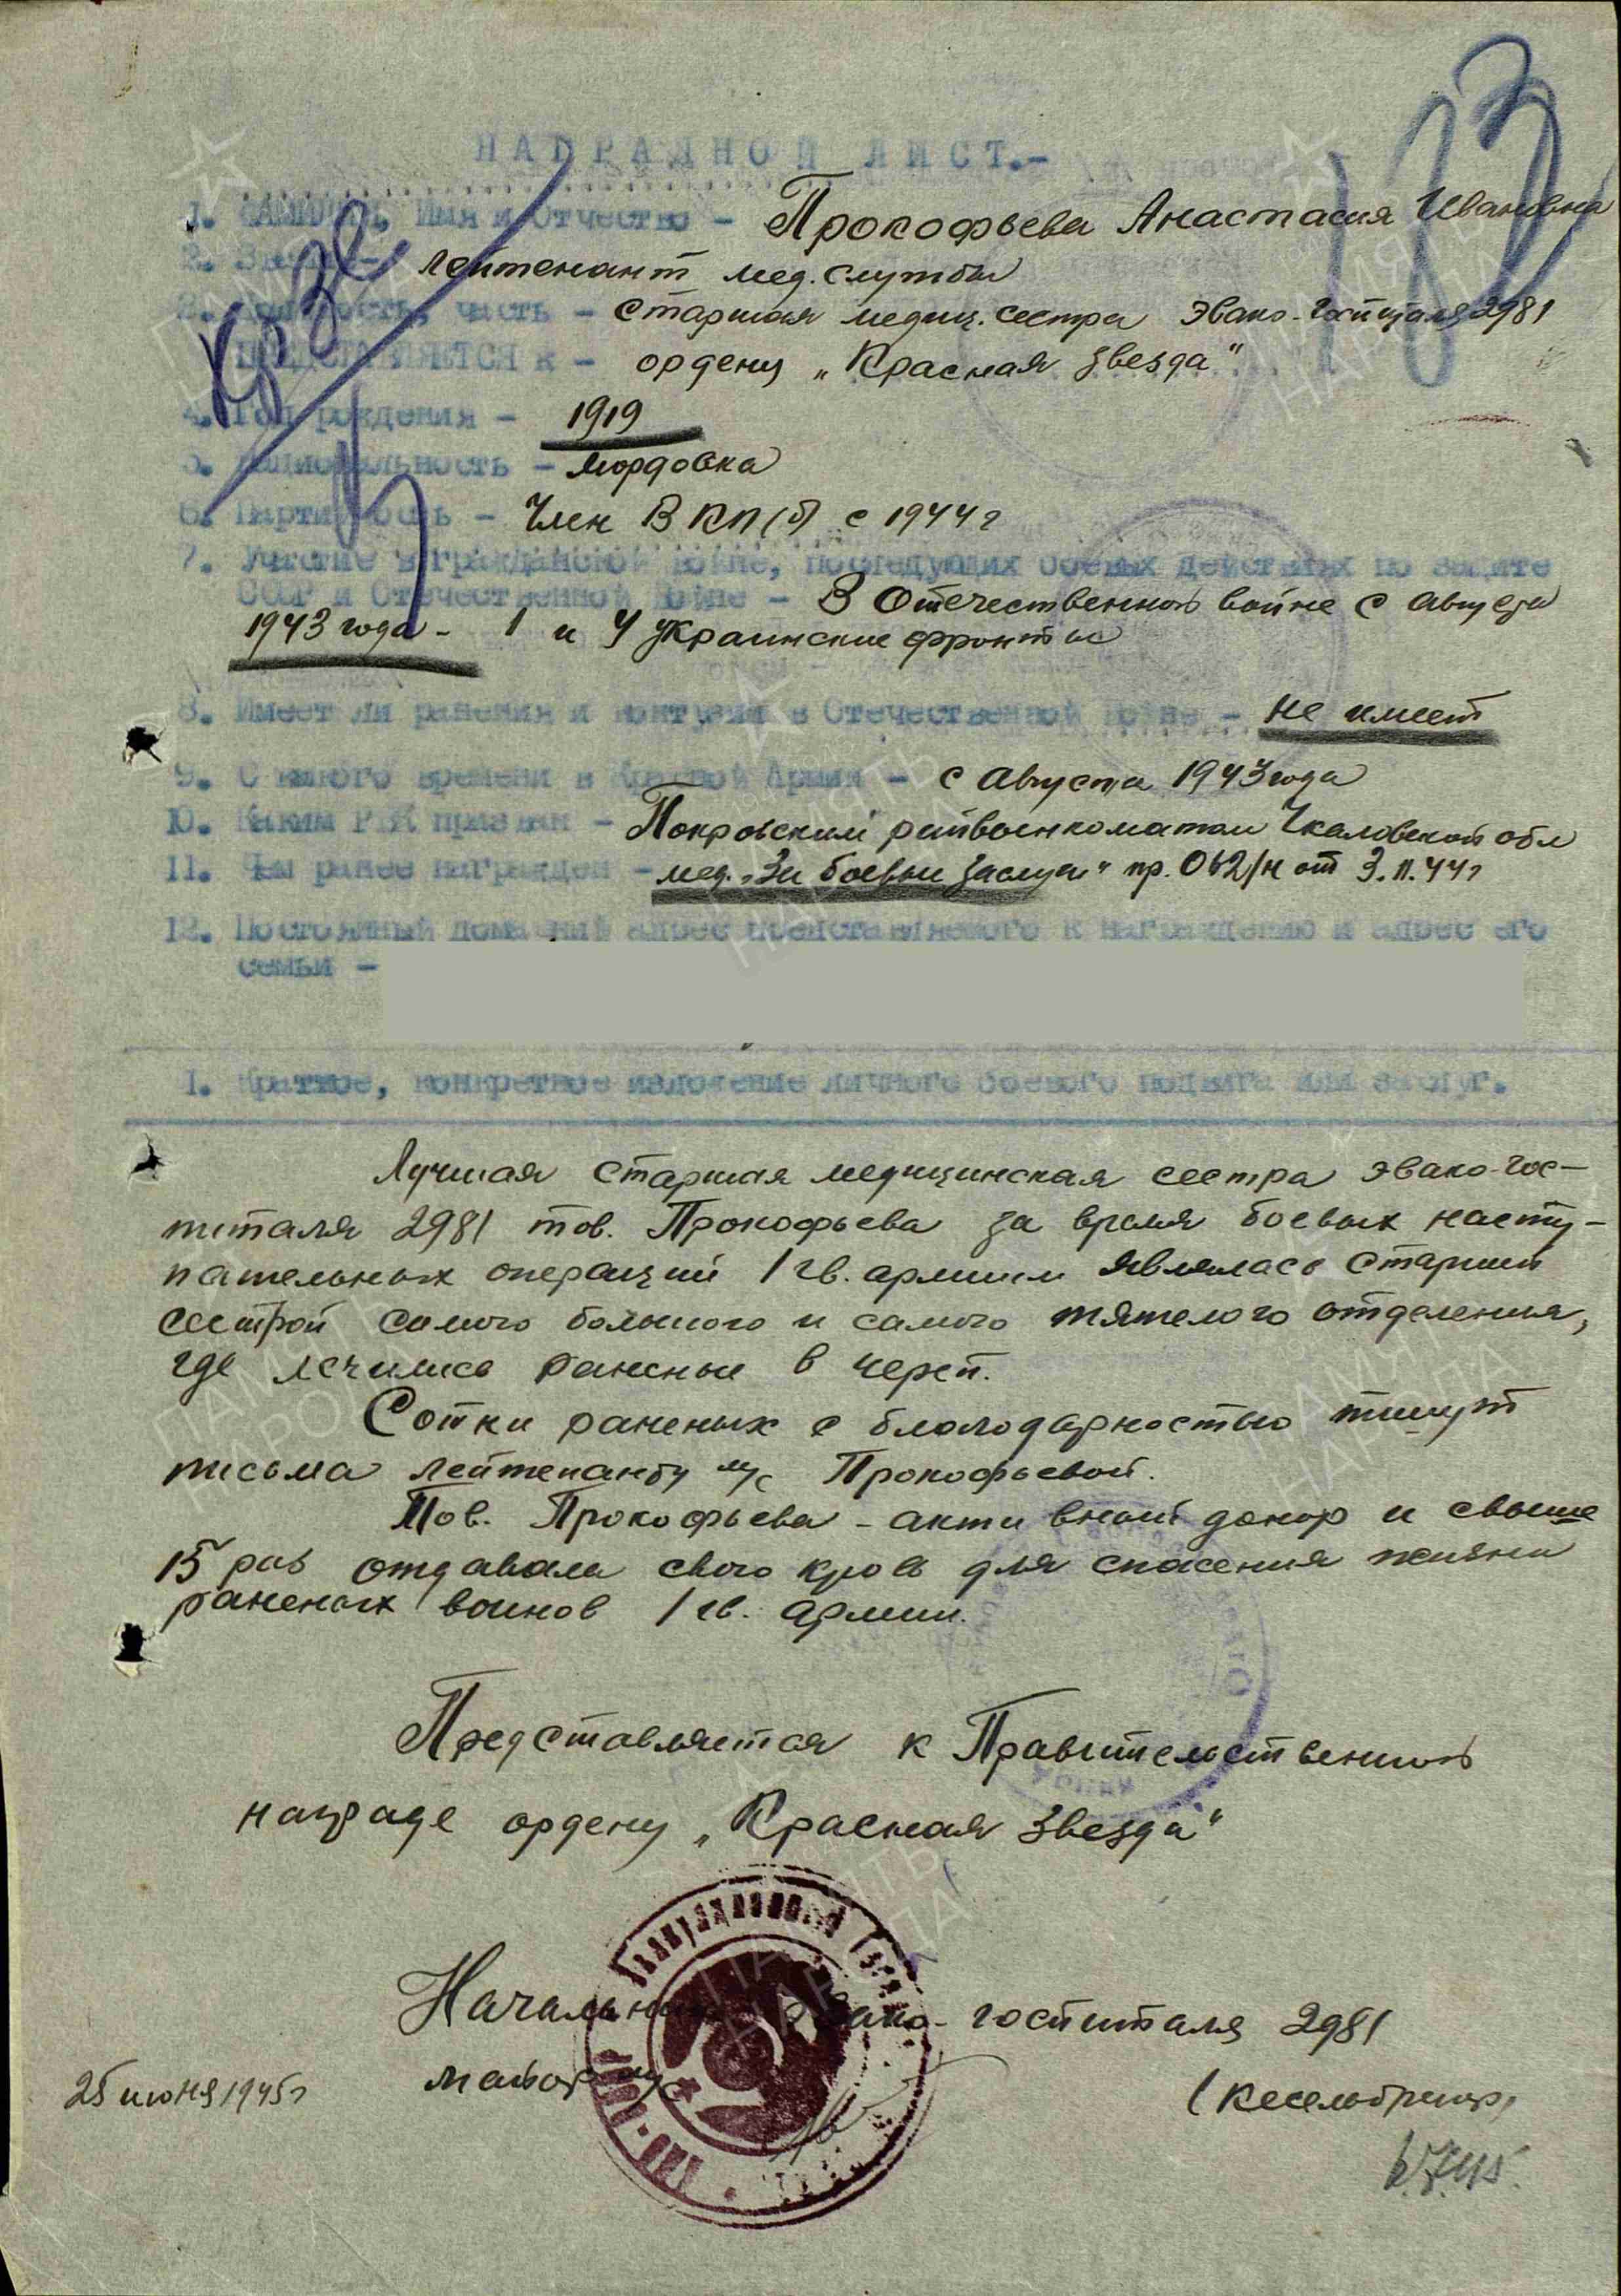 НАГРАДНОЙ ЛИСТ.-
1. Фамилия, Имя и Отчество - Прокофьева Анастасия Ивановна
2. Звание - лейтенант мед. службы
3. Должность, часть - старшая медиц. сестра эвако-госпиталя 2981
ПРЕДСТАВЛЯЕТСЯ к - ордену „Красная звезда“
4. Год рождения - 1919
5. Национальность - мордовка
6. Партийность - Член ВКП(б) с 1944 г
7. Участие в гражданской войне, последующих боевых действиях по защите
СССР и Отечественной войне - В Отечественной войне с августа
1943 года - 1 и 4 украинские фронты
8. Имеет ли ранения и контузии в Отечественной войне - не имеет
9. С какого времени в Красной Армии - с августа 1943 года
10. Каким РВК призван - Покровским райвоенкоматом Чкаловской обл
11. Чем ранее награжден - мед. „За боевые заслуги“ пр. 062/н от 3.II.44 г
12. Постоянный домашний адрес представляемого к награждению и адрес его
семьи -
I. Краткое, конкретное изложение личного боевого подвига или заслуг.
Лучшая старшая медицинская сестра эвако-гос-
питаля 2981 тов. Прокофьева за время боевых насту-
пательных операций 1 гв. армии являлась старшей
сестрой самого большого и самого тяжелого отделения,
где лечились раненые в череп.
Сотни раненых с благодарностью пишут
письма лейтенанту м/с Прокофьевой.
Тов. Прокофьева - активный донор и свыше
15 раз отдавала свою кровь для спасения жизни
раненых воинов 1 гв. армии.
Представляется к Правительственной
награде ордену „Красная Звезда“
Начальник эвако-госпиталя 2981
майор м/с
25 июня 1945 г
ПАМЯТЬ
НАРОДА